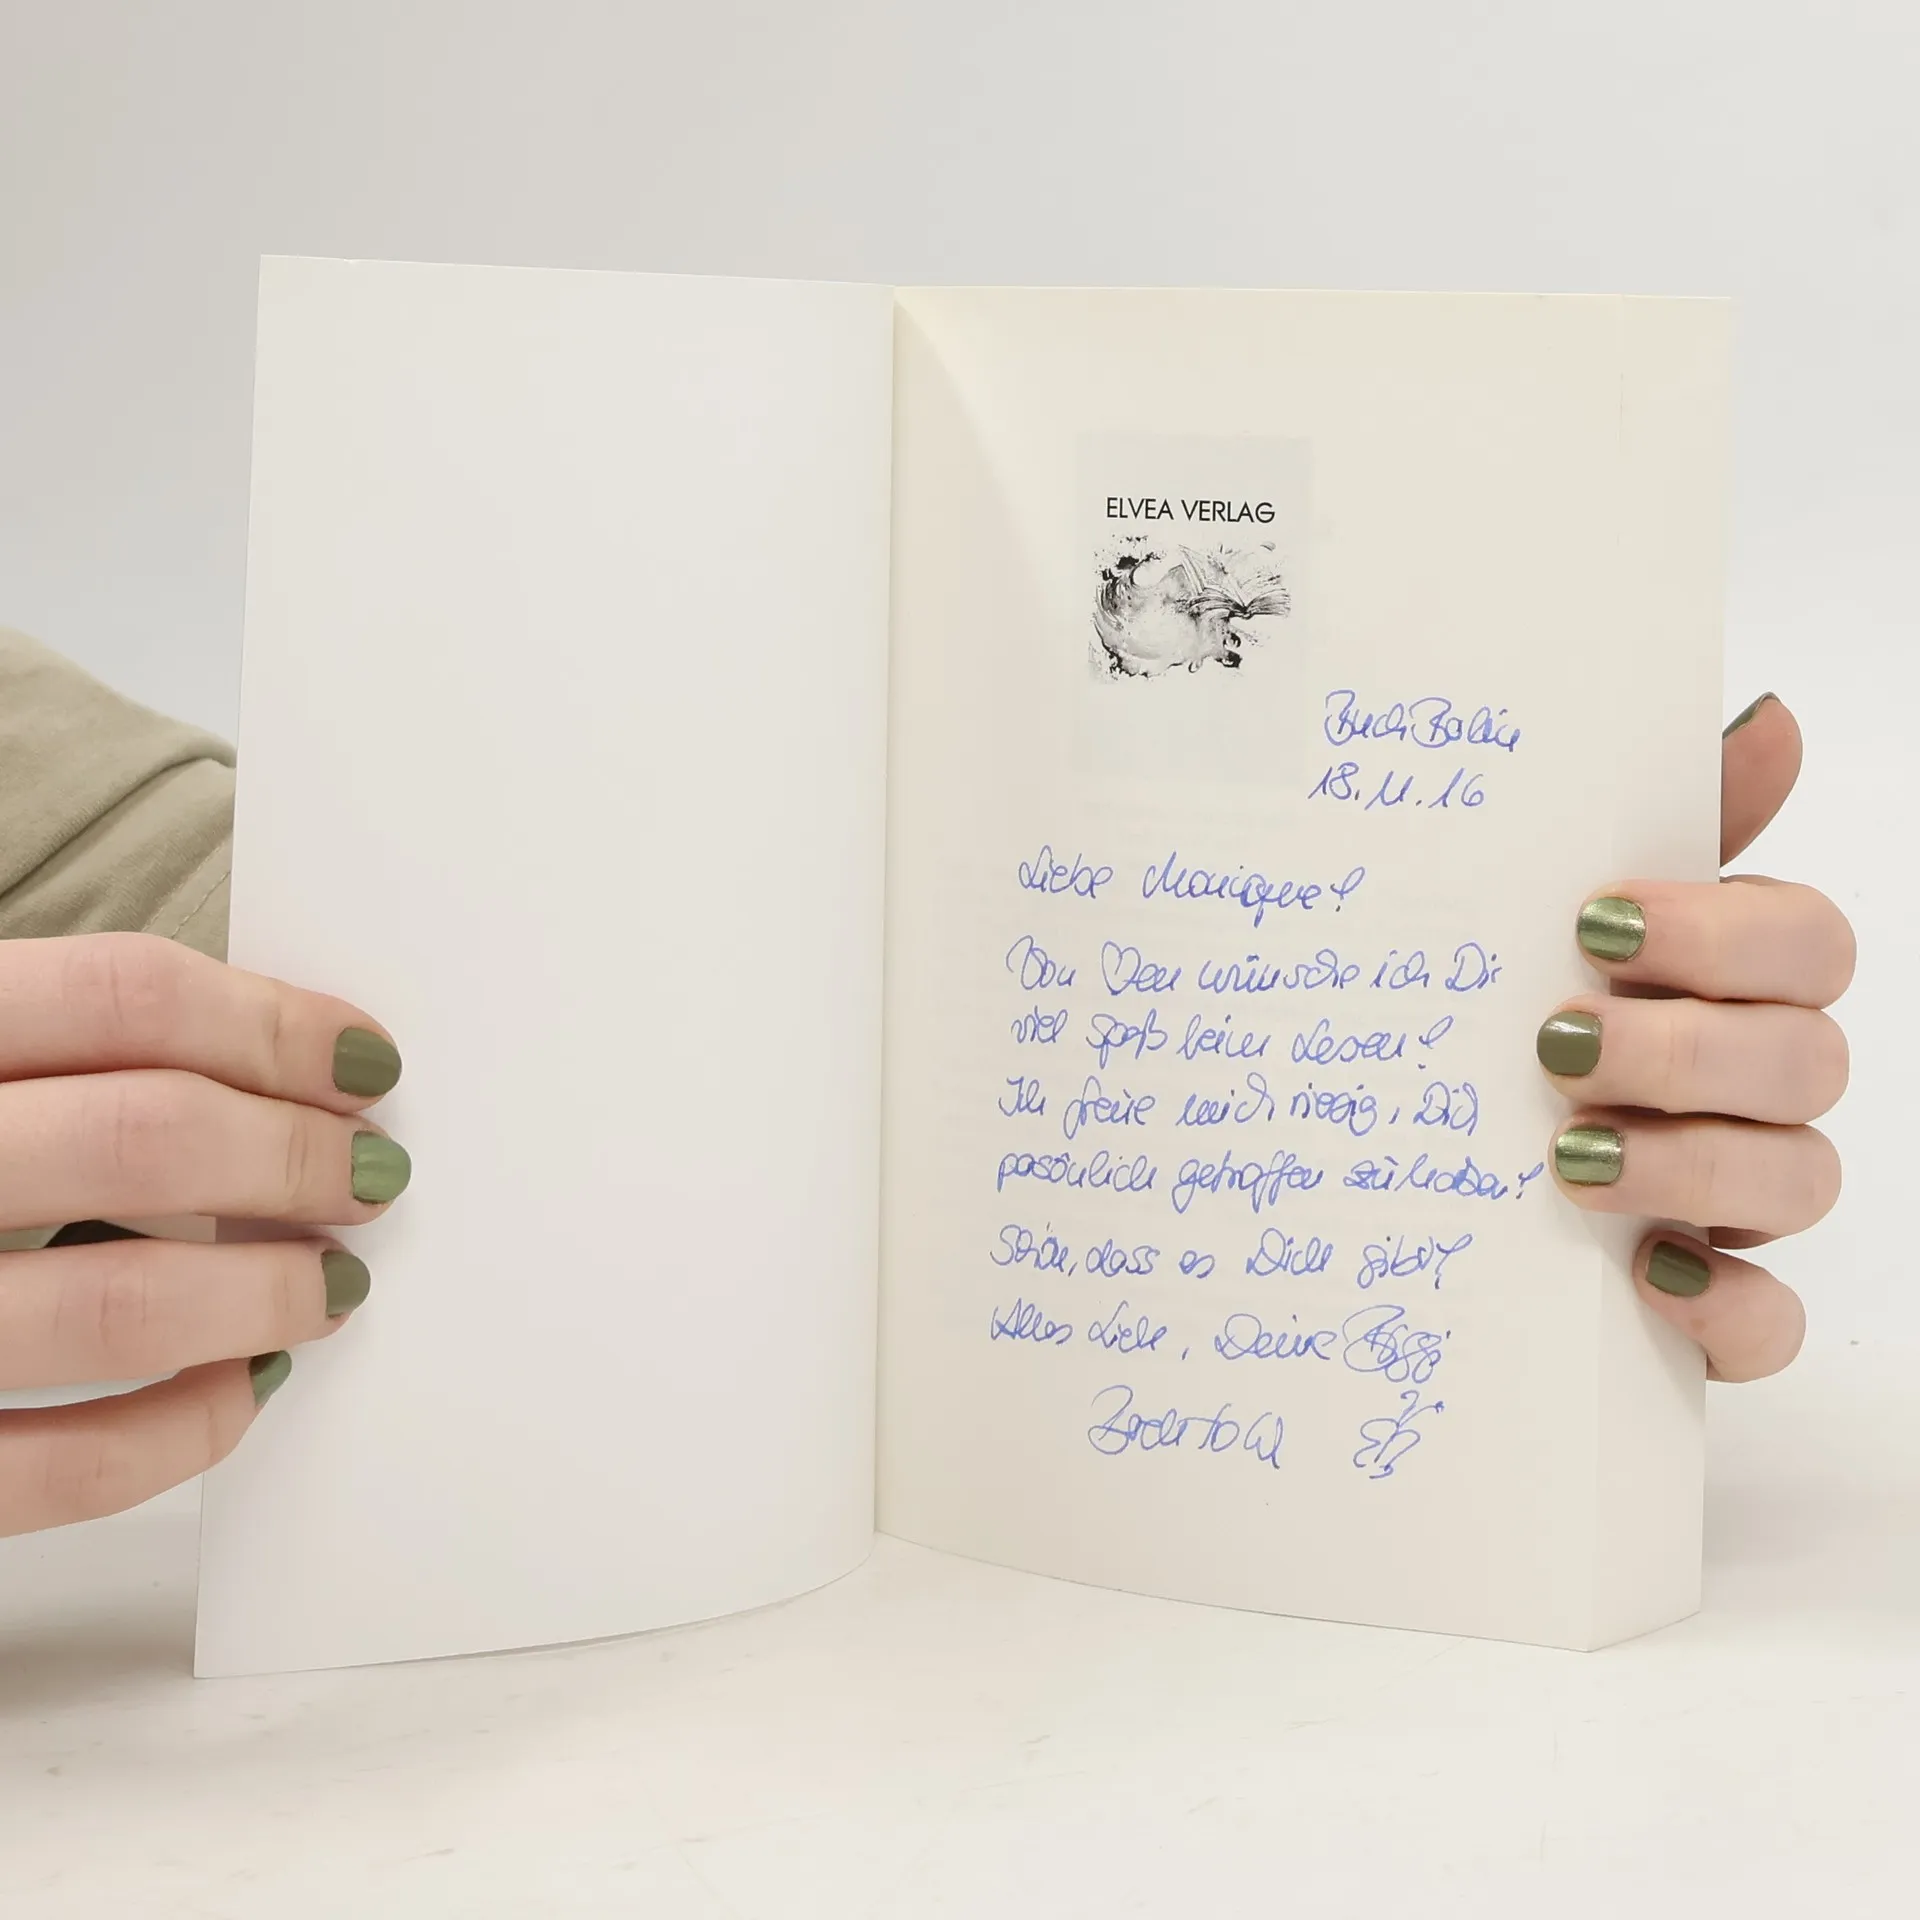 ELVEA VERLAG
Buch Berlin
18.11.16
Liebe Monique!
Von ♡en wünsche ich Dir
viel Spaß beim Lesen!
Ich freue mich riesig, Dich
persönlich getroffen zu haben!
Schön, dass es Dich gibt!
Alles Liebe, Deine Biggi